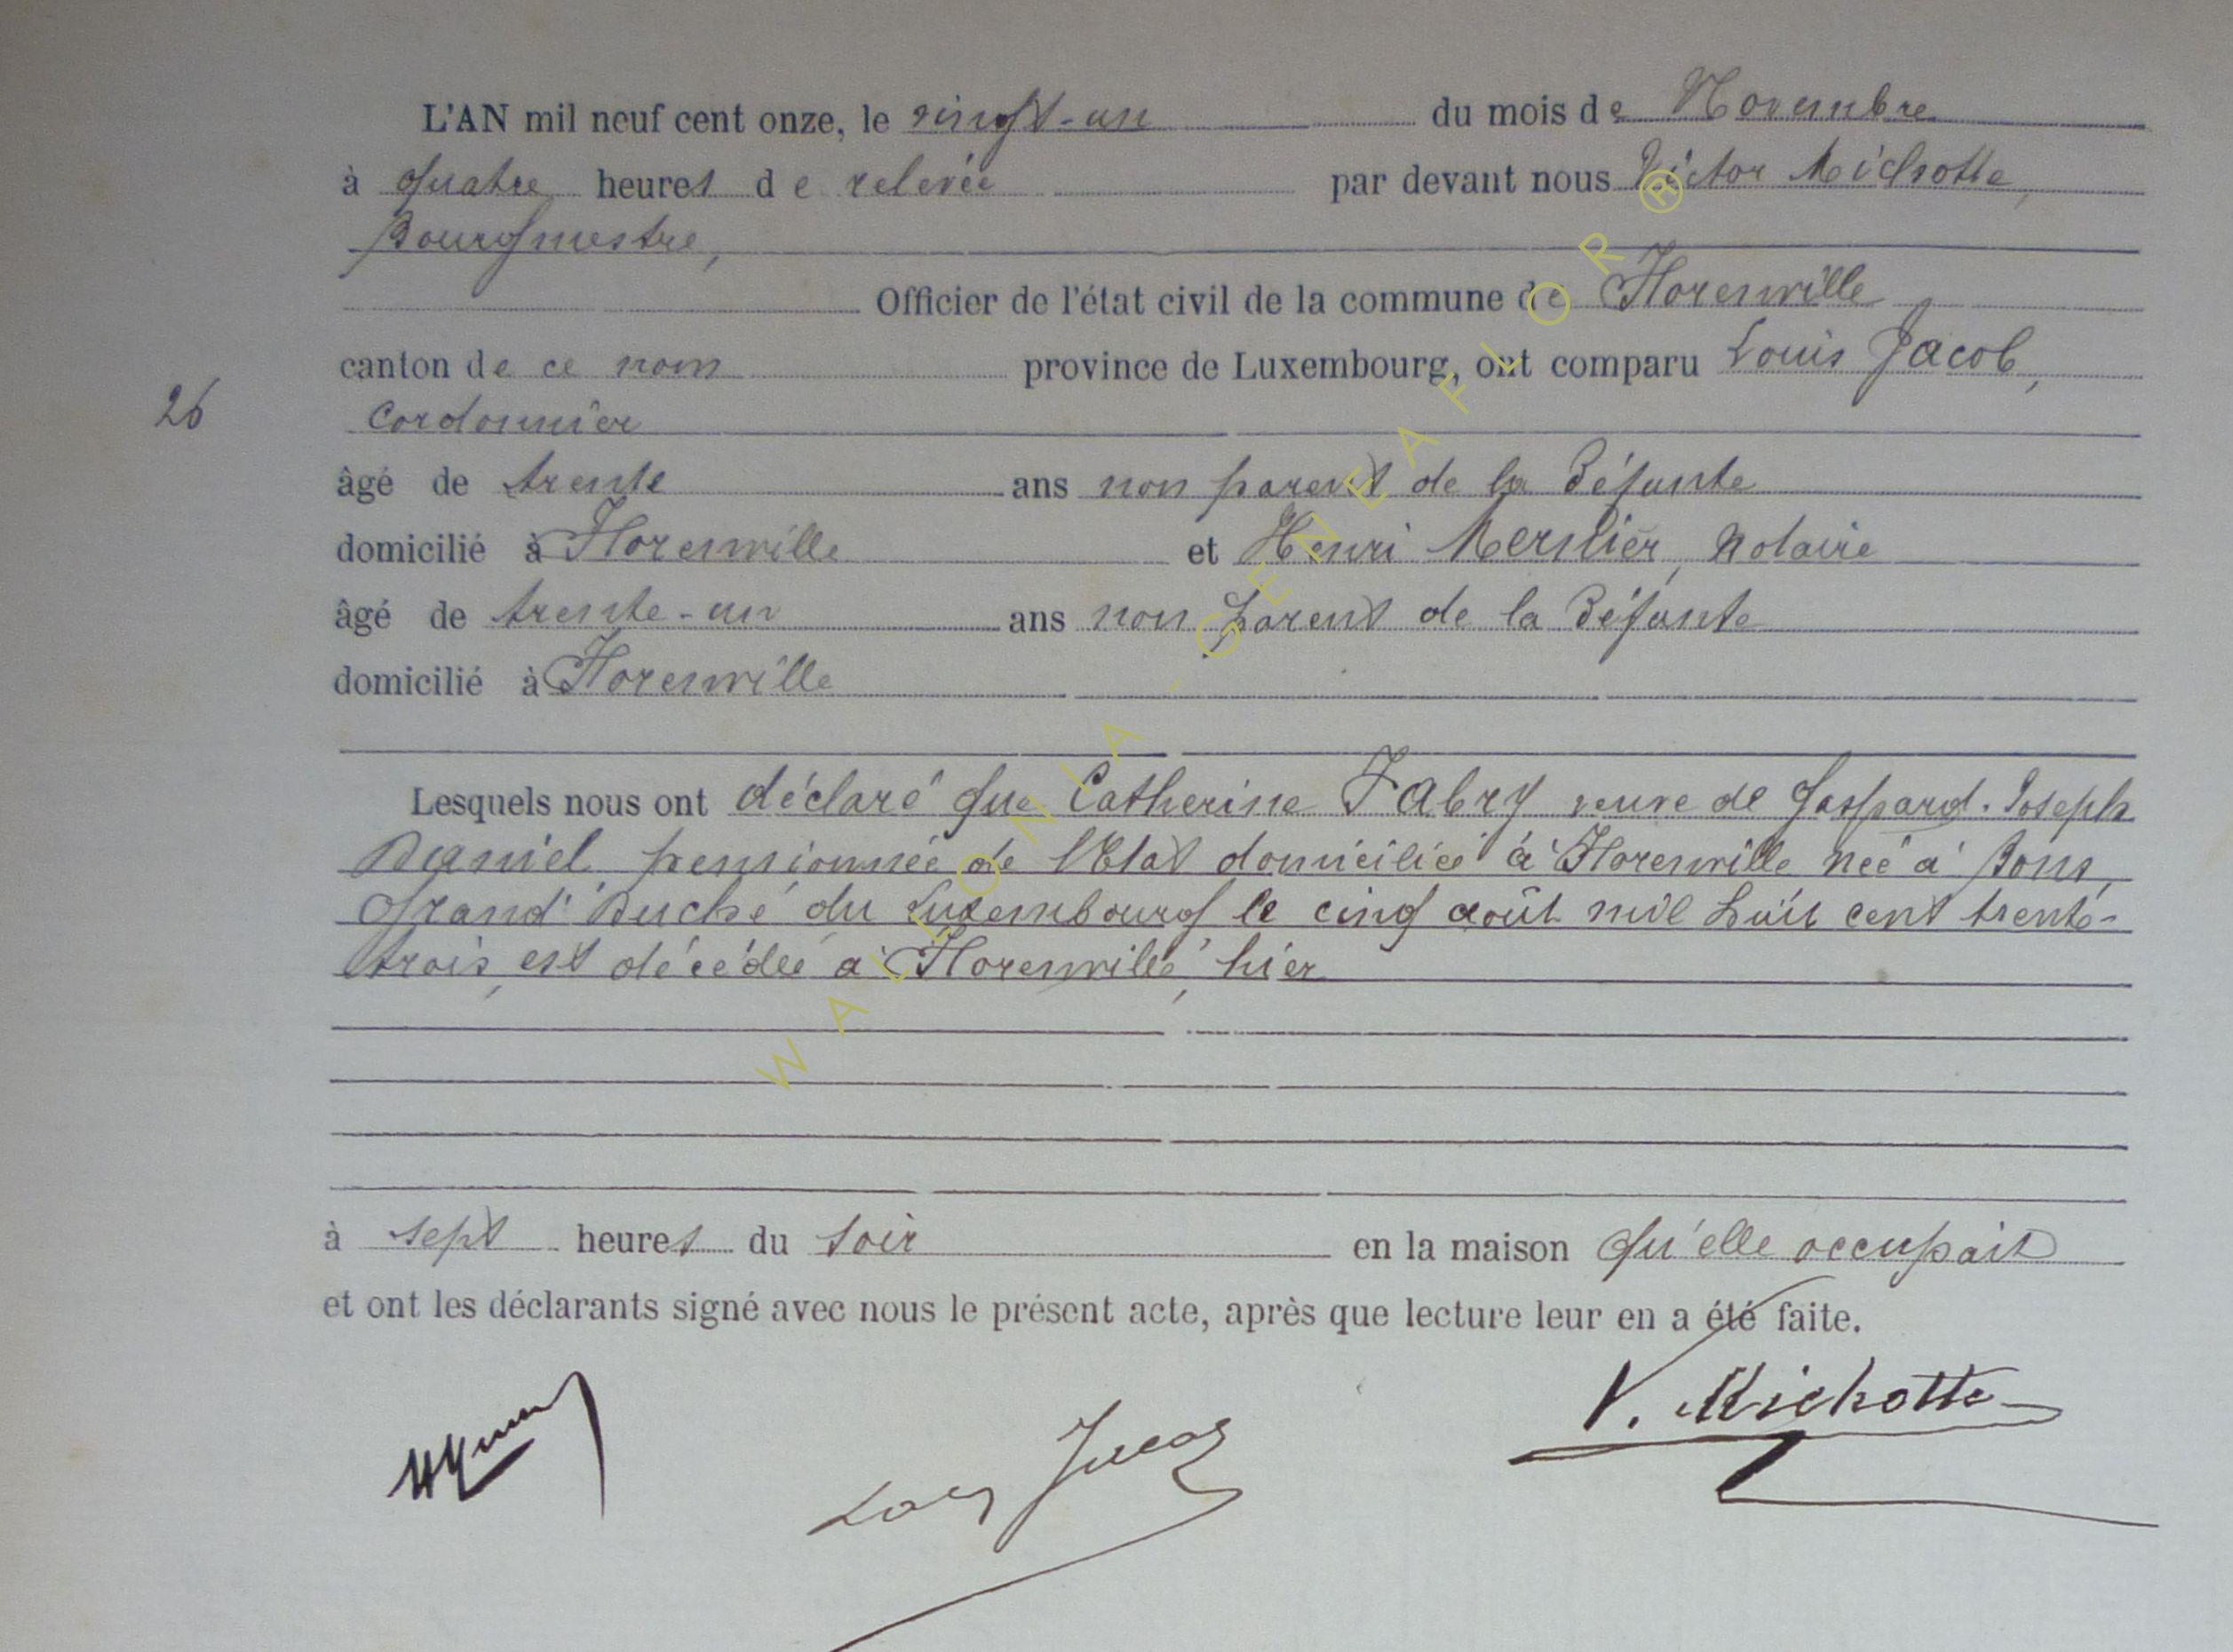 L'AN mil neuf cent onze, le vingt-un du mois de Novembre
à quatre heures de relevée par devant nous Victor Michotte,
Bourgmestre,
Officier de l'état civil de la commune de Florenville
canton de ce nom province de Luxembourg, ont comparu Louis Jacob,
26
Cordonnier
âgé de trente ans non parent de la défunte
domicilié à Florenville et Henri Mernier, Notaire
âgé de trente-un ans non parent de la défunte
domicilié à Florenville
Lesquels nous ont déclaré que Catherine Fabry veuve de Gaspard-Joseph
Daniel, pensionnée de l'Etat domiciliée à Florenville née à Bous,
Grand Duché du Luxembourg le cinq août mil huit cent trente-
trois, est décédée à Florenville, hier
à sept heures du soir en la maison qu'elle occupait
et ont les déclarants signé avec nous le présent acte, après que lecture leur en a été faite.
V. Michotte
Louis Jacob
WALLONIA - GENEAFLOR ®